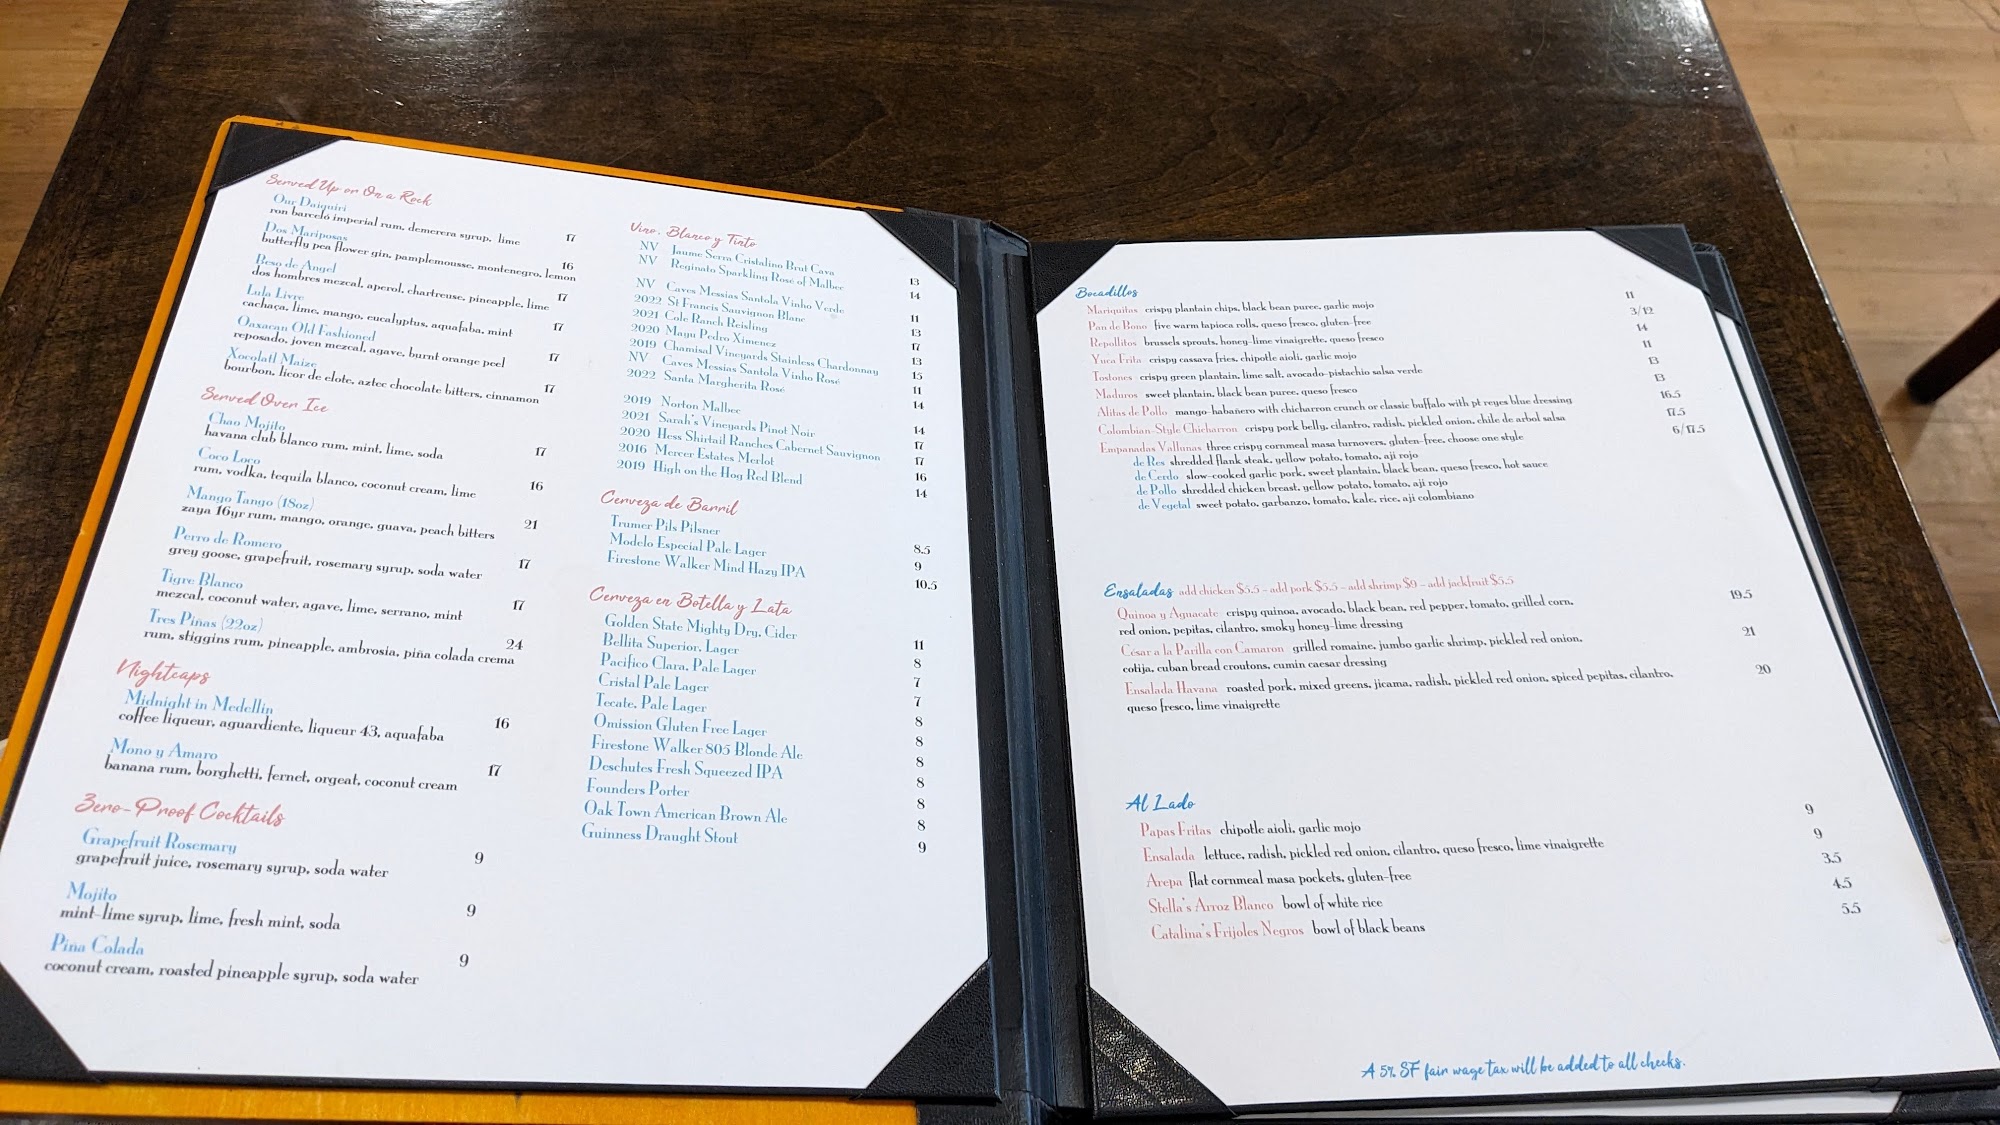 Served Up or On a Rock
Our Daiquiri
ron barceló imperial rum, demerera syrup, lime 17
Dos Mariposas
butterfly pea flower gin, pamplemousse, montenegro, lemon 16
Beso de Angel
dos hombres mezcal, aperol, chartreuse, pineapple, lime 17
Lula Livre
cachaça, lime, mango, eucalyptus, aquafaba, mint 17
Oaxacan Old Fashioned
reposado, joven mezcal, agave, burnt orange peel 17
Xocolatl Maize
bourbon, licor de elote, aztec chocolate bitters, cinnamon 17
Served Over Ice
Chao Mojito
havana club blanco rum, mint, lime, soda 17
Coco Loco
rum, vodka, tequila blanco, coconut cream, lime 16
Mango Tango (18oz)
zaya 16yr rum, mango, orange, guava, peach bitters 21
Perro de Romero
grey goose, grapefruit, rosemary syrup, soda water 17
Tigre Blanco
mezcal, coconut water, agave, lime, serrano, mint 17
Tres Piñas (22oz)
rum, stiggins rum, pineapple, ambrosia, piña colada crema 24
Nightcaps
Midnight in Medellin
coffee liqueur, aguardiente, liqueur 43, aquafaba 16
Mono y Amaro
banana rum, borghetti, fernet, orgeat, coconut cream 17
Zero-Proof Cocktails
Grapefruit Rosemary
grapefruit juice, rosemary syrup, soda water 9
Mojito
mint-lime syrup, lime, fresh mint, soda 9
Piña Colada
coconut cream, roasted pineapple syrup, soda water 9
Vino, Blanco y Tinto
NV Jaume Serra Cristalino Brut Cava 13
NV Reginato Sparkling Rosé of Malbec 14
NV Caves Messias Santola Vinho Verde 11
2022 St Francis Sauvignon Blanc 13
2021 Cole Ranch Reisling 17
2020 Mayu Pedro Ximenez 13
2019 Chamisal Vineyards Stainless Chardonnay 15
NV Caves Messias Santola Vinho Rosé 11
2022 Santa Margherita Rosé 14
2019 Norton Malbec 14
2021 Sarah's Vineyards Pinot Noir 17
2020 Hess Shirtail Ranches Cabernet Sauvignon 17
2016 Mercer Estates Merlot 16
2019 High on the Hog Red Blend 14
Cerveza de Barril
Trumer Pils Pilsner 8.5
Modelo Especial Pale Lager 9
Firestone Walker Mind Hazy IPA 10.5
Cerveza en Botella y Lata
Golden State Mighty Dry, Cider 11
Bellita Superior, Lager 8
Pacifico Clara, Pale Lager 7
Cristal Pale Lager 7
Tecate, Pale Lager 8
Omission Gluten Free Lager 8
Firestone Walker 805 Blonde Ale 8
Deschutes Fresh Squeezed IPA 8
Founders Porter 8
Oak Town American Brown Ale 8
Guinness Draught Stout 9
Bocadillos
Mariquitas crispy plantain chips, black bean puree, garlic mojo 11
Pan de Bono five warm tapioca rolls, queso fresco, gluten-free 3/12
Repollitos brussels sprouts, honey-lime vinaigrette, queso fresco 14
Yuca Frita crispy cassava fries, chipotle aioli, garlic mojo 11
Tostones crispy green plantain, lime salt, avocado-pistachio salsa verde 13
Maduros sweet plantain, black bean puree, queso fresco 13
Alitas de Pollo mango-habañero with chicharron crunch or classic buffalo with pt reyes blue dressing 16.5
Colombian-Style Chicharron crispy pork belly, cilantro, radish, pickled onion, chile de arbol salsa 17.5
Empanadas Vallunas three crispy cornmeal masa turnovers, gluten-free, choose one style 6/17.5
de Res shredded flank steak, yellow potato, tomato, aji rojo
de Cerdo slow-cooked garlic pork, sweet plantain, black bean, queso fresco, hot sauce
de Pollo shredded chicken breast, yellow potato, tomato, aji rojo
de Vegetal sweet potato, garbanzo, tomato, kale, rice, aji colombiano
Ensaladas add chicken $5.5 - add pork $5.5 - add shrimp $9 - add jackfruit $5.5
Quinoa y Aguacate crispy quinoa, avocado, black bean, red pepper, tomato, grilled corn, 19.5
red onion, pepitas, cilantro, smoky honey-lime dressing
César a la Parilla con Camaron grilled romaine, jumbo garlic shrimp, pickled red onion, 21
cotija, cuban bread croutons, cumin caesar dressing
Ensalada Havana roasted pork, mixed greens, jicama, radish, pickled red onion, spiced pepitas, cilantro, 20
queso fresco, lime vinaigrette
Al Lado
Papas Fritas chipotle aioli, garlic mojo 9
Ensalada lettuce, radish, pickled red onion, cilantro, queso fresco, lime vinaigrette 9
Arepa flat cornmeal masa pockets, gluten-free 3.5
Stella's Arroz Blanco bowl of white rice 4.5
Catalina's Frijoles Negros bowl of black beans 5.5
A 5% SF fair wage tax will be added to all checks.